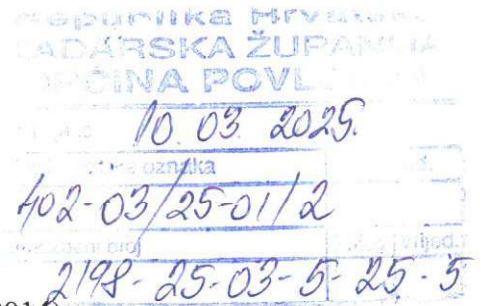 Republika Hrvatska
ZADARSKA ŽUPANIJA
OPĆINA POVL
10. 03. 2025.
oznaka
402-03/25-01/2
broj
Vrijed.
2198-25-03-5-25-5